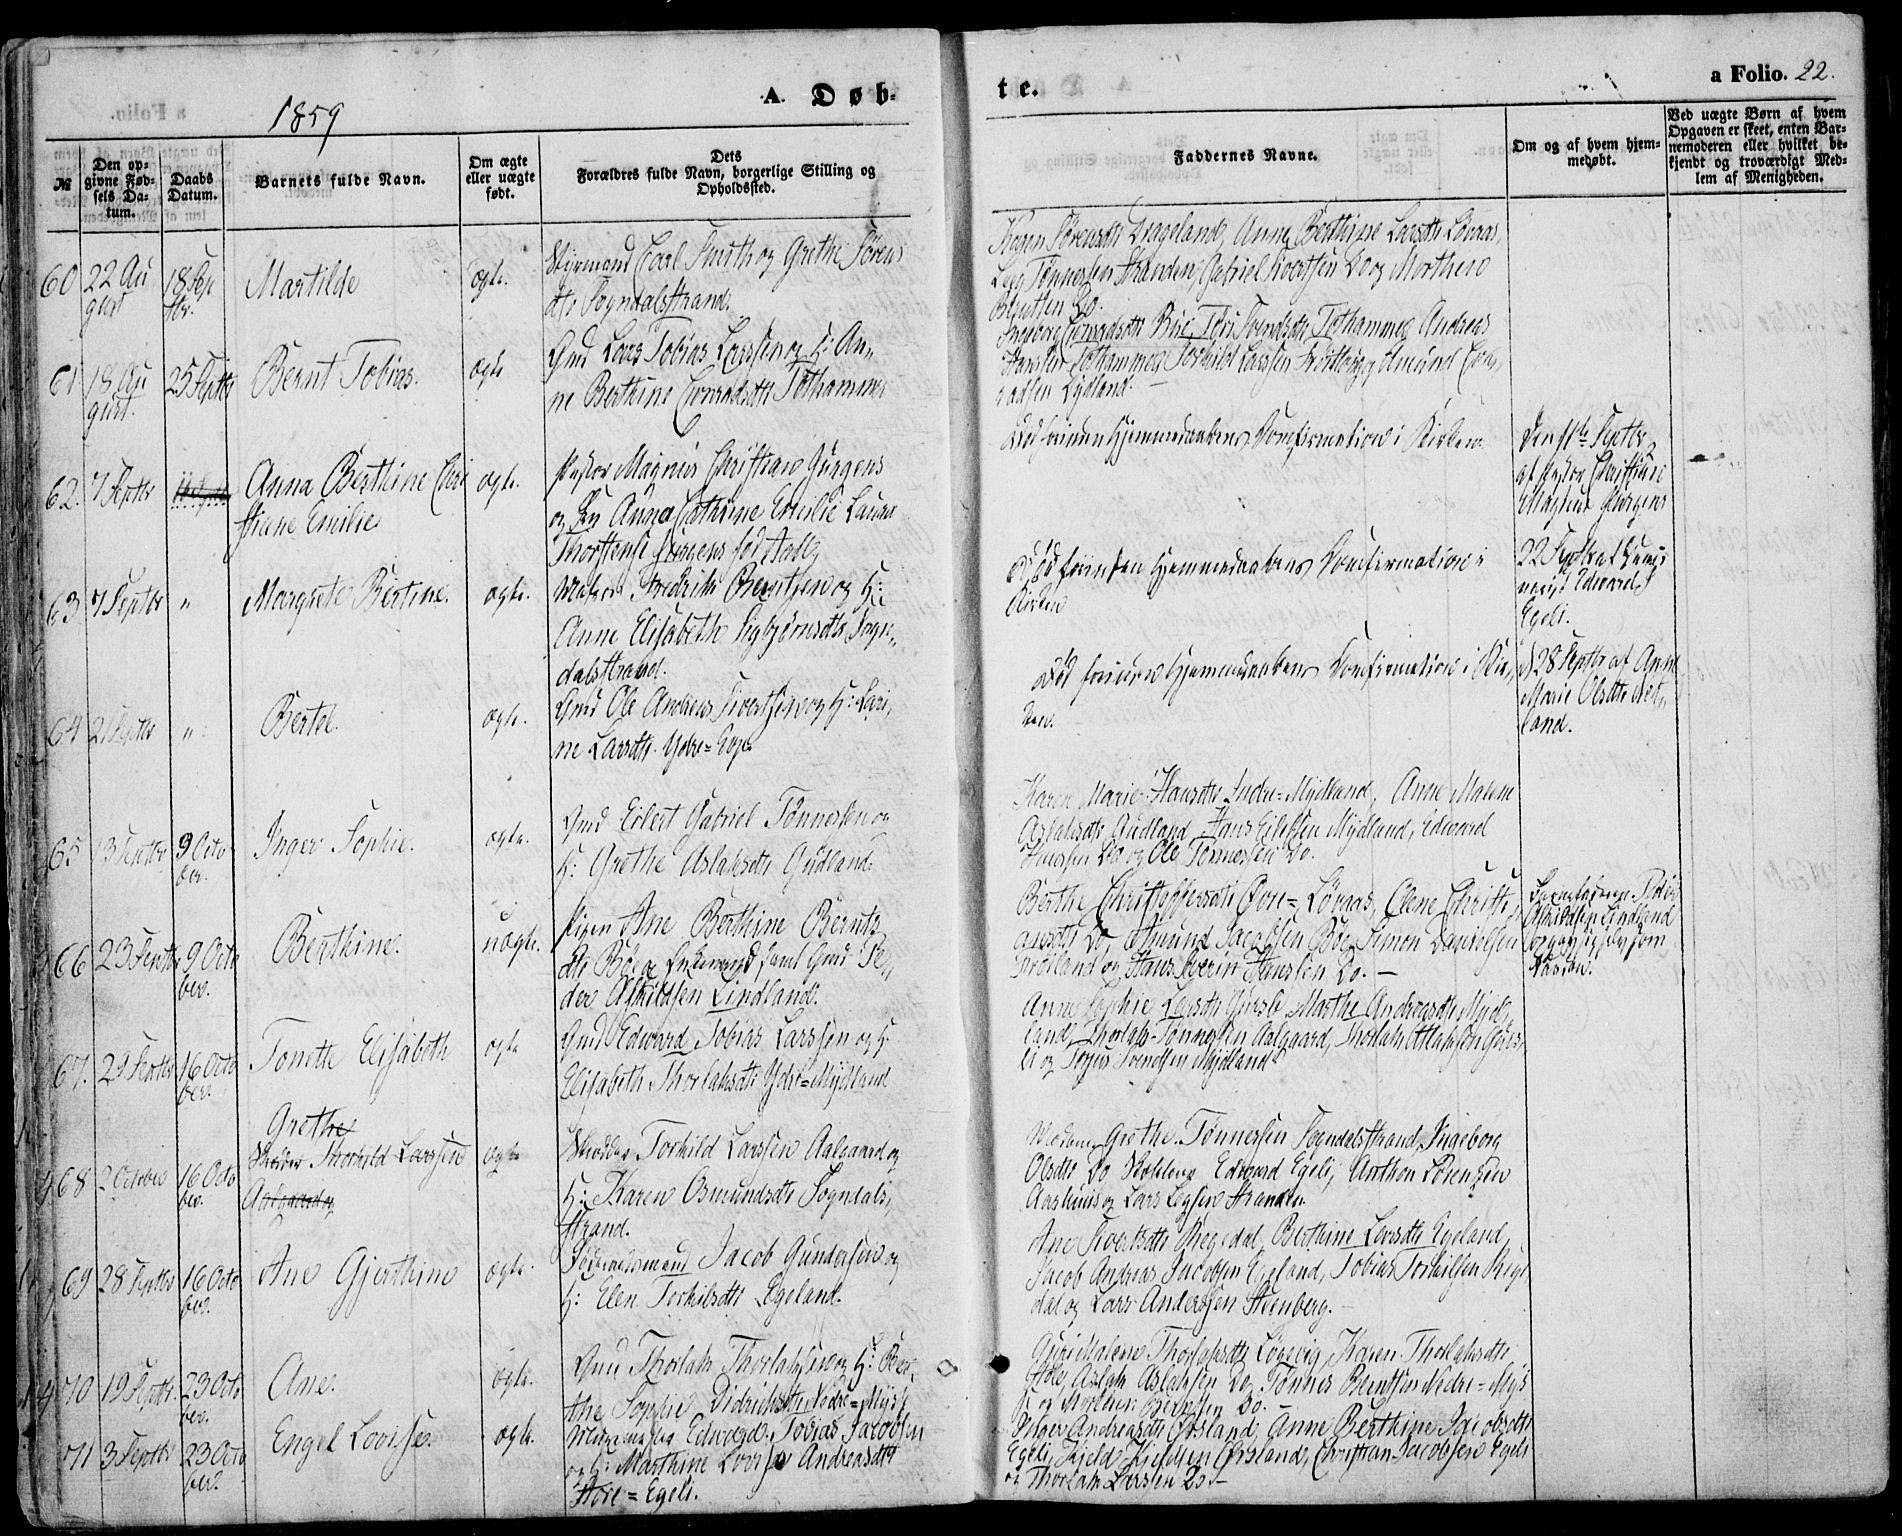 1859
A. Døb-
te.
a Folio. 22.
№
Den op-
givne Fød-
sels Da-
tum.
Daabs
Datum.
Barnets fulde Navn.
Om ægte
eller uægte
født.
Dets
Forældres fulde Navn, borgerlige Stilling og
Opholdssted.
Faddernes Navne.
Om og af hvem hjem-
medøbt.
Ved uægte Børn af hvem
Opgaven er skeet, enten Bar-
nemoderen eller hvilket be-
kjendt og troværdigt Med-
lem af Menigheden.
60
22 Au
gust
18 Sep
tbr.
Martilde
ægte.
Styrmand Carl Smith og Grethe Sørens
dtr Sogndalsstrand.
Sørensdtr Drageland, Anne Berthine Larsdtr Løvaas,
Tønnessen Stranden, Gabriel Do og
Do.
61
18 Au
gust.
25 Septbr
Bernt Tobias.
ægte
Gmd Lars Tobias Larssen og H: An,
ne Berthine Conradsdtr Tothammer
Ingeborg Conradsdtr Bøe, Tori Svendsdtr Tothammer Andreas
Hanssen Tothammer Torkild Larssen og Omund Con,
radsen Lydland.
62.
7 Septbr
Anna Berthine Chri
stiane Emilie
ægte.
Pastor Magnus Christian Gürgens
og Fru Anna Cathrine Emilie Laura
Gürgens fød
Død forinden Hjemmedaabens Confirmation i Kirken.
Den 11te Septbr
af Pastor Christian
Magnus Gürgens
63
7 Septbr
"
Margrete Bertine.
ægte.
Fredrik Berntsen og H:
Anne Elisabeth Sigbjørnsdtr Sogn,
dalsstrand.
Død forinden Hjemmedaabens Confirmation i
Kirken
22 Septbr af
Edward
Egeli.
64
21 Septbr
"
Bertel.
ægte.
Gmd Ole Andreas Sivertsen og H: Lari,
ne Larsdtr. Ydre=Ege.
Død forinden Hjemmedaabens Confirmation i Kir,
ken.
d 28 Septbr af Anne
Marie Olsdtr
land.
65
13 Septbr
9 Octo
ber.
Inger Sophie.
ægte.
Gmd Eilert Gabriel Tønnessen og
H: Grethe Aslaksdtr Gydland.
Karen Marie Hansdtr Indre=Mydland, Anne Malene
Aslaksdtr Gudland, Hans Eilertsen Mydland, Edward
Hanssen Do og Ole Tønnessen Do.
66
23 Septbr
9 Octo
ber.
Berthine.
uægte.
Pigen Ane Berthine Bernts
dtr Bøe og samt Gmd Pe,
der Askildsen Lindland.
Berthe Christoffersdtr Øvre=Løvaas, Olene Christi,
ansdtr Do, Omund Jacobsen Bøe, Simon Danielsen
Frøiland og Hans Severin Hanssen Do. —
Barnefaderen Peder
Askildsen Lindland
opgav sig selv som
67.
29 Septbr
16 Octo
ber.
Tonette Elisabeth
ægte
Gmd Edward Tobias Larssen og H:
Elisabeth Thorlaksdtr Ydre=Mydland
Anne Sophie Larsdtr Gursle, Marthe Andreasdtr Myd,
land, Thorlak Tønnessen Aalgaard, Thorlak Gurs
li og Torjus Svendsen Mydland
68
2 October
16 Octo
ber.
Grethe
Skræder Thorkild Larssen
Aalgaard og
ægte
Skræder Torkild Larssen Aalgaard og
H: Karen Osmundsdtr Sogndals,
strand.
Madame Grethe Tønnessen Sogndalsstrand, Ingeborg
Olsdtr Do Edvard Egeli, Anthon Sørensen
og Lars Stranden.
69
28 Septbr
16 Octo
ber.
Ane Gjerthine
ægte.
Jacob Gundersen og
H: Elen Torkilsdtr Egeland.
Ane Sivertsdtr Regedal, Berthine Larsdtr Egeland,
Jacob Andreas Jacobsen Egeland, Tobias Torkilsen Rege
dal og Lars Anderssen Steenberg. —
70
19 Septbr.
23 Octo
ber.
Ane.
ægte.
Gmd Thorlak Thorlaksen og H: Ber,
the Sophie Didriksdtr Nedre=Mysse
Malene Thorlaksdtr Løgevig, Karen Thorlaksdtr
Aslak Aslaksen Do, Tønnes Berntsen Nedre=Mys
se og Berntsen Do.
71
3 Septbr
23 Octo
ber.
Engel Lovise.
ægte.
Edward Tobias Jacobsen
og H: Marthine Lovise Andreasdtr
Store=Egeli.
Inger Andreasdtr Ørsland, Anne Berthine Jacobsdtr
Egeli, Kjeld Kjeldsen Ørsland, Christian Jacobsen Egeli
og Thorlak Larssen Do. —